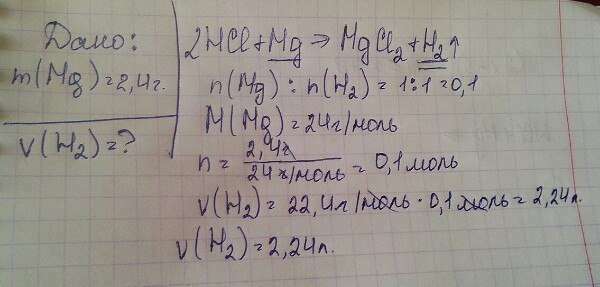 Дано:
m(Mg)=2,4г.
V(H₂)=?
2HCl+Mg⇒MgCl₂+H₂↑
n(Mg):n(H₂)=1:1=0,1
M(Mg)=24г/моль
n= 2,4г / 24г/моль = 0,1моль
V(H₂)=22,4л/моль·0,1моль=2,24л.
V(H₂)=2,24л.